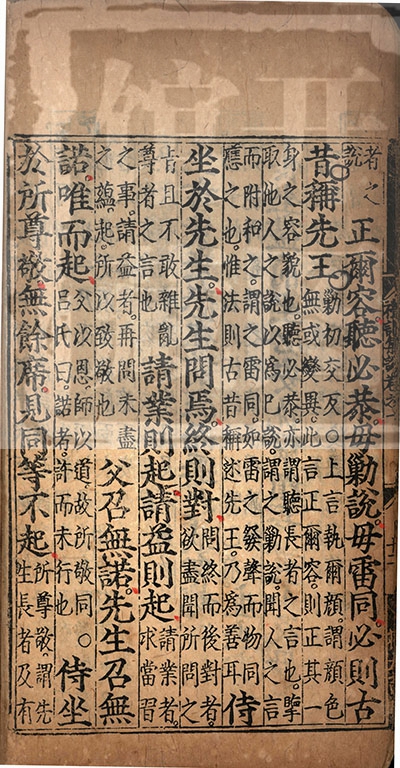 者之
說○
正爾容聽必恭毋勦說毋雷同必則古
昔稱先王
勦初交反○上言執爾顏謂顏色
無或變異此言正爾容則正其一
身之容貌也聽必恭亦謂聽長者之言也擥
取他人之說以爲己說謂之勦說聞人之言
而附和之謂之雷同如雷之發聲而物同
應之也惟法則古昔稱述先王乃爲善耳
侍
坐於先生先生問焉終則對
問終而後對者
欲盡聞所問之
旨且不敢雜亂
尊者之言也
請業則起請益則起
請業者
求當習
之事請益者再問未盡
之蘊起所以致敬也
父召無諾先生召無
諾唯而起
父以恩師以道故所敬同○
呂氏曰諾者許而未行也
侍坐
於所尊敬無餘席見同等不起
所尊敬謂先
生長者及有